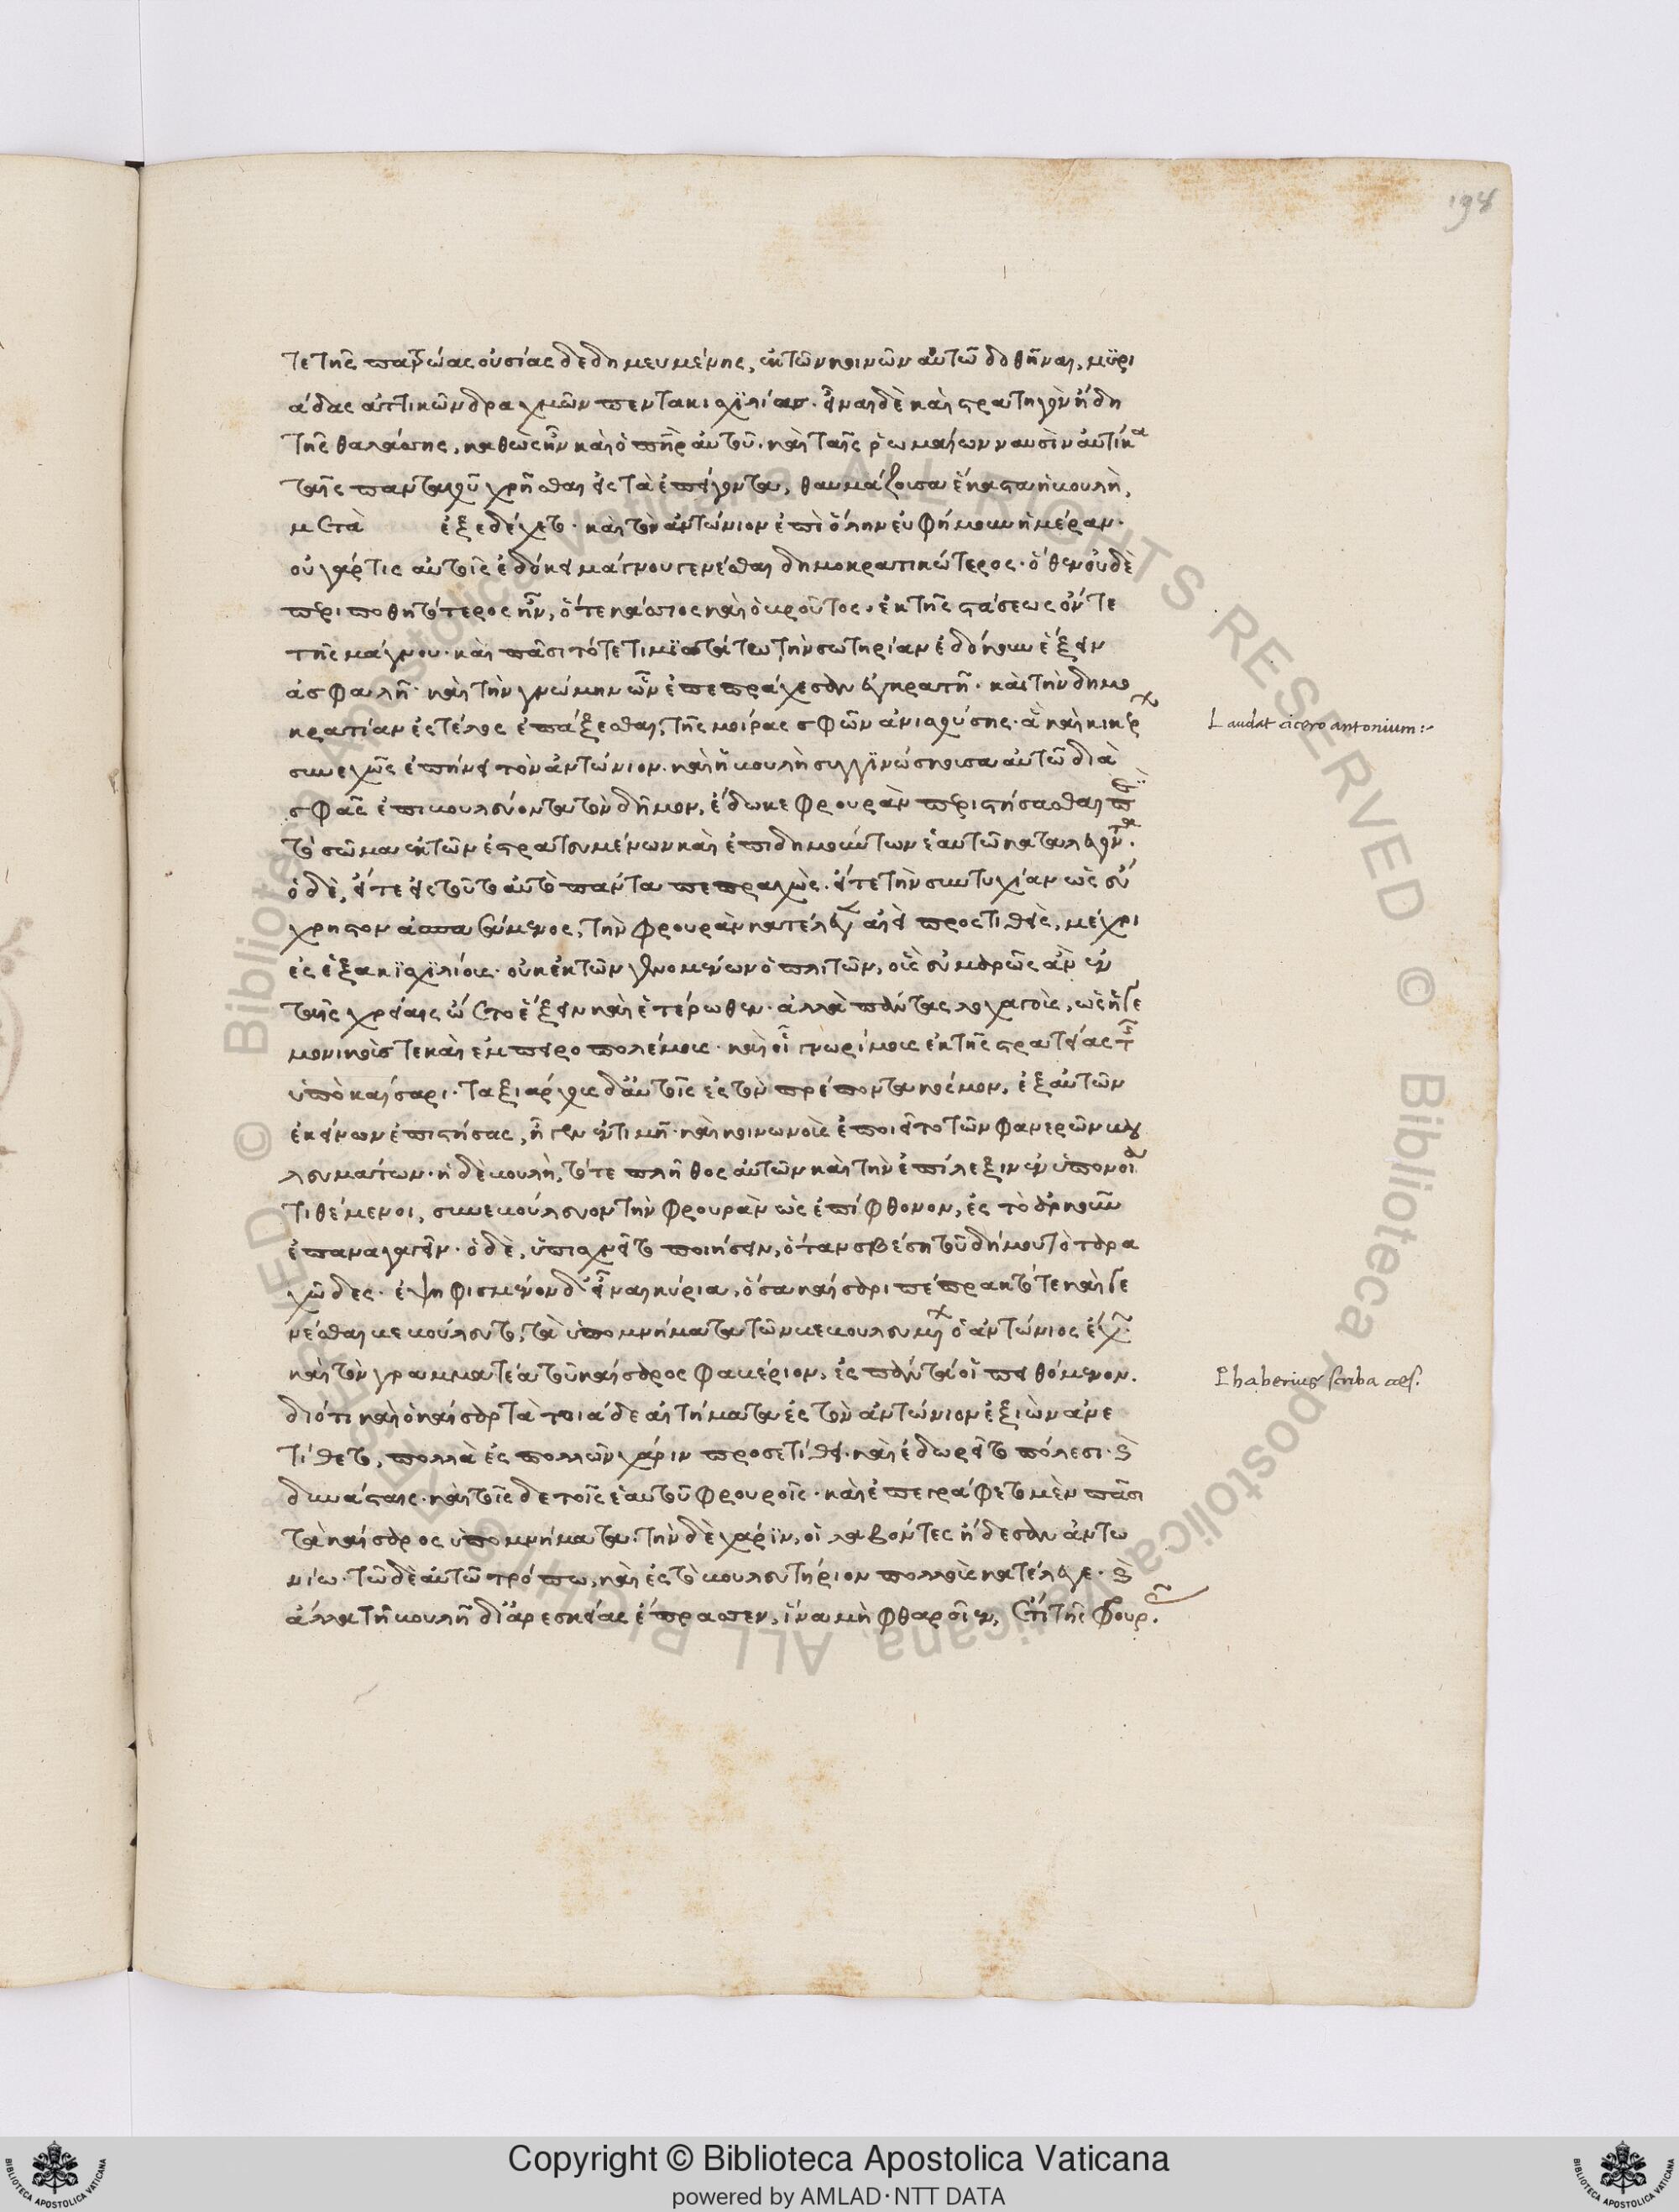 194
τε τῆς πατρώας οὐσίας δεδημευμένης, ἐκ τῶν κοινῶν αὐτῶ δοθῆναι, μϋρι
άδας ἀττικῶν δραχμῶν πεντακισχϊλίαν. εἶναι δὲ καὶ στρατηγὸν ἤδη
τῆς θαλάσσης, καθὼς ἦν καὶ ὁ πῆρ αὐτοῦ. καὶ ταῖς ῥωμαίων ναυσὶν αὐτίκα
ταῖς πανταχοῦ χρῆσθαι εἰς τὰ ἐπείγοντα, θαυμάζουσα ἕκαστα ἡ βουλὴ,
μετὰ ἐξεδέχετο. καὶ τὸν ἀντώνιον ἐπὶ ὅλην εὐφήμουν ἡμέραν.
οὐ γάρ τις αὐτοῖς ἐδόκει μάγνου γενέσθαι δημοκρατικώτερος. ὅθεν οὐδὲ
περιποθητότερος ἦν, ὅτε κάσσιος καὶ ὁ βροῦτος. ἐκ τῆς στάσεως ὄντε
τῆς μάγνου. καὶ πᾶσι τότε τιμϊωτάτω, τὴν σωτηρίαν ἐδόκουν ἕξειν
ἀσφαλῆ. καὶ τὴν γνώμην ὧν ἐπεπράχεσαν ἐγκρατῆ. καὶ τὴν δημο
κρατίαν ἐς τέλος ἐπάξεσθαι, τῆς μοίρας σφῶν ἀνισχούσης. ἃ καὶ κικέρων
συνεχῶς ἐπήνει τὸν ἀντώνιον. καὶ ἡ βουλὴ συγγϊνώσκουσα αὐτῶ διὰ
σφᾶς ἐπιβουλεύοντα τὸν δῆμον, ἔδωκε φρουρὰν περιστήσασθαι περὶ
τὸ σῶμα ἐκ τῶν ἐστρατευμένων καὶ ἐπιδημούντων ἑαυτῶ καταλέγοντα.
ὁ δὲ, εἴτε εἰς τοῦτο αὐτὸ πάντα πεπραχὼς. εἴτε τὴν συντυχίαν ὡς εὔ
χρηστον ἀσπασάμενος, τὴν φρουρὰν κατέλεγεν αἰεὶ προστιθεὶς, μέχρι
ἐς ἑξακισχϊλίους. οὐκ ἐκ τῶν γινομένων ὁπλιτῶν, οἷς εὐμαρῶς ἂν ἐν
ταῖς χρείαις ὤετο ἕξειν καὶ ἑτέρωθεν. ἀλλὰ πάντας λοχαγοὺς, ὡς ἡγε
μονικούς τε καὶ ἐμπειροπολέμους. καὶ οἷ γνωρίμους ἐκ τῆς στρατείας τῆς
ὑπὸ καίσαρι. ταξιάρχους δ' αὐτοῖς ἐς τὸν πρέποντα κόσμον, ἐξ αὐτῶν
ἐκείνων ἐπιστήσας, ἦγεν ἐν τιμῆ. καὶ κοινωνοὺς ἐποιεῖτο τῶν φανερῶν βου
λευμάτων. ἡ δὲ βουλὴ, τό τε πλῆθος αὐτῶν καὶ τὴν ἐπίλεξιν ἐν ὑπονοία
τιθέμενοι, συνεβούλευον τὴν φρουρὰν ὡς ἐπίφθονον, ἐς τὸ ἀρκοῦν
ἐπαναγαγεῖν. ὁ δὲ, ὑπισχνεῖτο ποιήσειν, ὅταν σβέση τοῦ δήμου τὸ ταρα
χῶδες. ἐψηφισμένον δ' εἶναι κύρια, ὅσα καίσαρι πέπρακτό τε καὶ γε
νέσθαι βεβούλευτο, τὰ ὑπομνήματα τῶν βεβουλευμένων ὁ ἀντώνιος ἔχων.
καὶ τὸν γραμματέα τοῦ καίσαρος φαβέριον, ἐς πάντα οἱ πειθόμενον.
διότι καὶ ὁ καίσαρ τὰ τοιάδε αἰτήματα ἐς τὸν ἀντώνιον ἐξιὼν ἀνε
τίθετο, πολλὰ ἐς πολλῶν χάριν προσετίθει. καὶ ἐδωρεῖτο πόλεσι. καὶ
δυνάσταις. καὶ τοῖς δε τοῖς ἑαυτοῦ φρουροῖς. καὶ ἐπεγράφετο μὲν πᾶσι
τὰ καίσαρος ὑπομνήματα. τὴν δὲ χάρϊν, οἱ λαβόντες ἤδεσαν ἀντω
νίω. τῶ δὲ αὐτῶ τρόπω, καὶ ἐς τὸ βουλευτήριον πολλοὺς κατέλεγε. καὶ
ἄλλα τῆ βουλῆ δι' ἀρεσκείας ἔπρασσεν, ἵνα μὴ φθονοῖεν, ἔτι τῆς φρουρᾶς.
Laudat cicero antonium:~
Phaberius scriba caes.
Copyright © Biblioteca Apostolica Vaticana
powered by AMLAD·NTT DATA